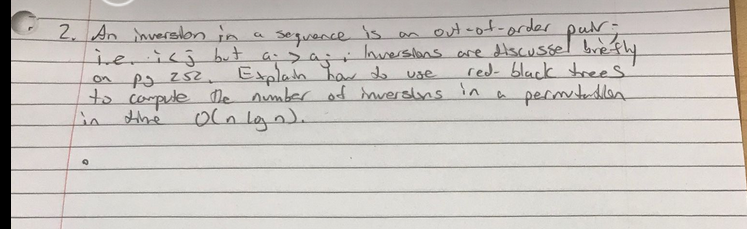 2. An inversion in a sequence is an out-of-order pair -
i.e. i < j but ai > aj ; Inversions are discussed briefly
on pg 252. Explain how to use red-black trees
to compute the number of inversions in a permutation
in time O(n lg n).